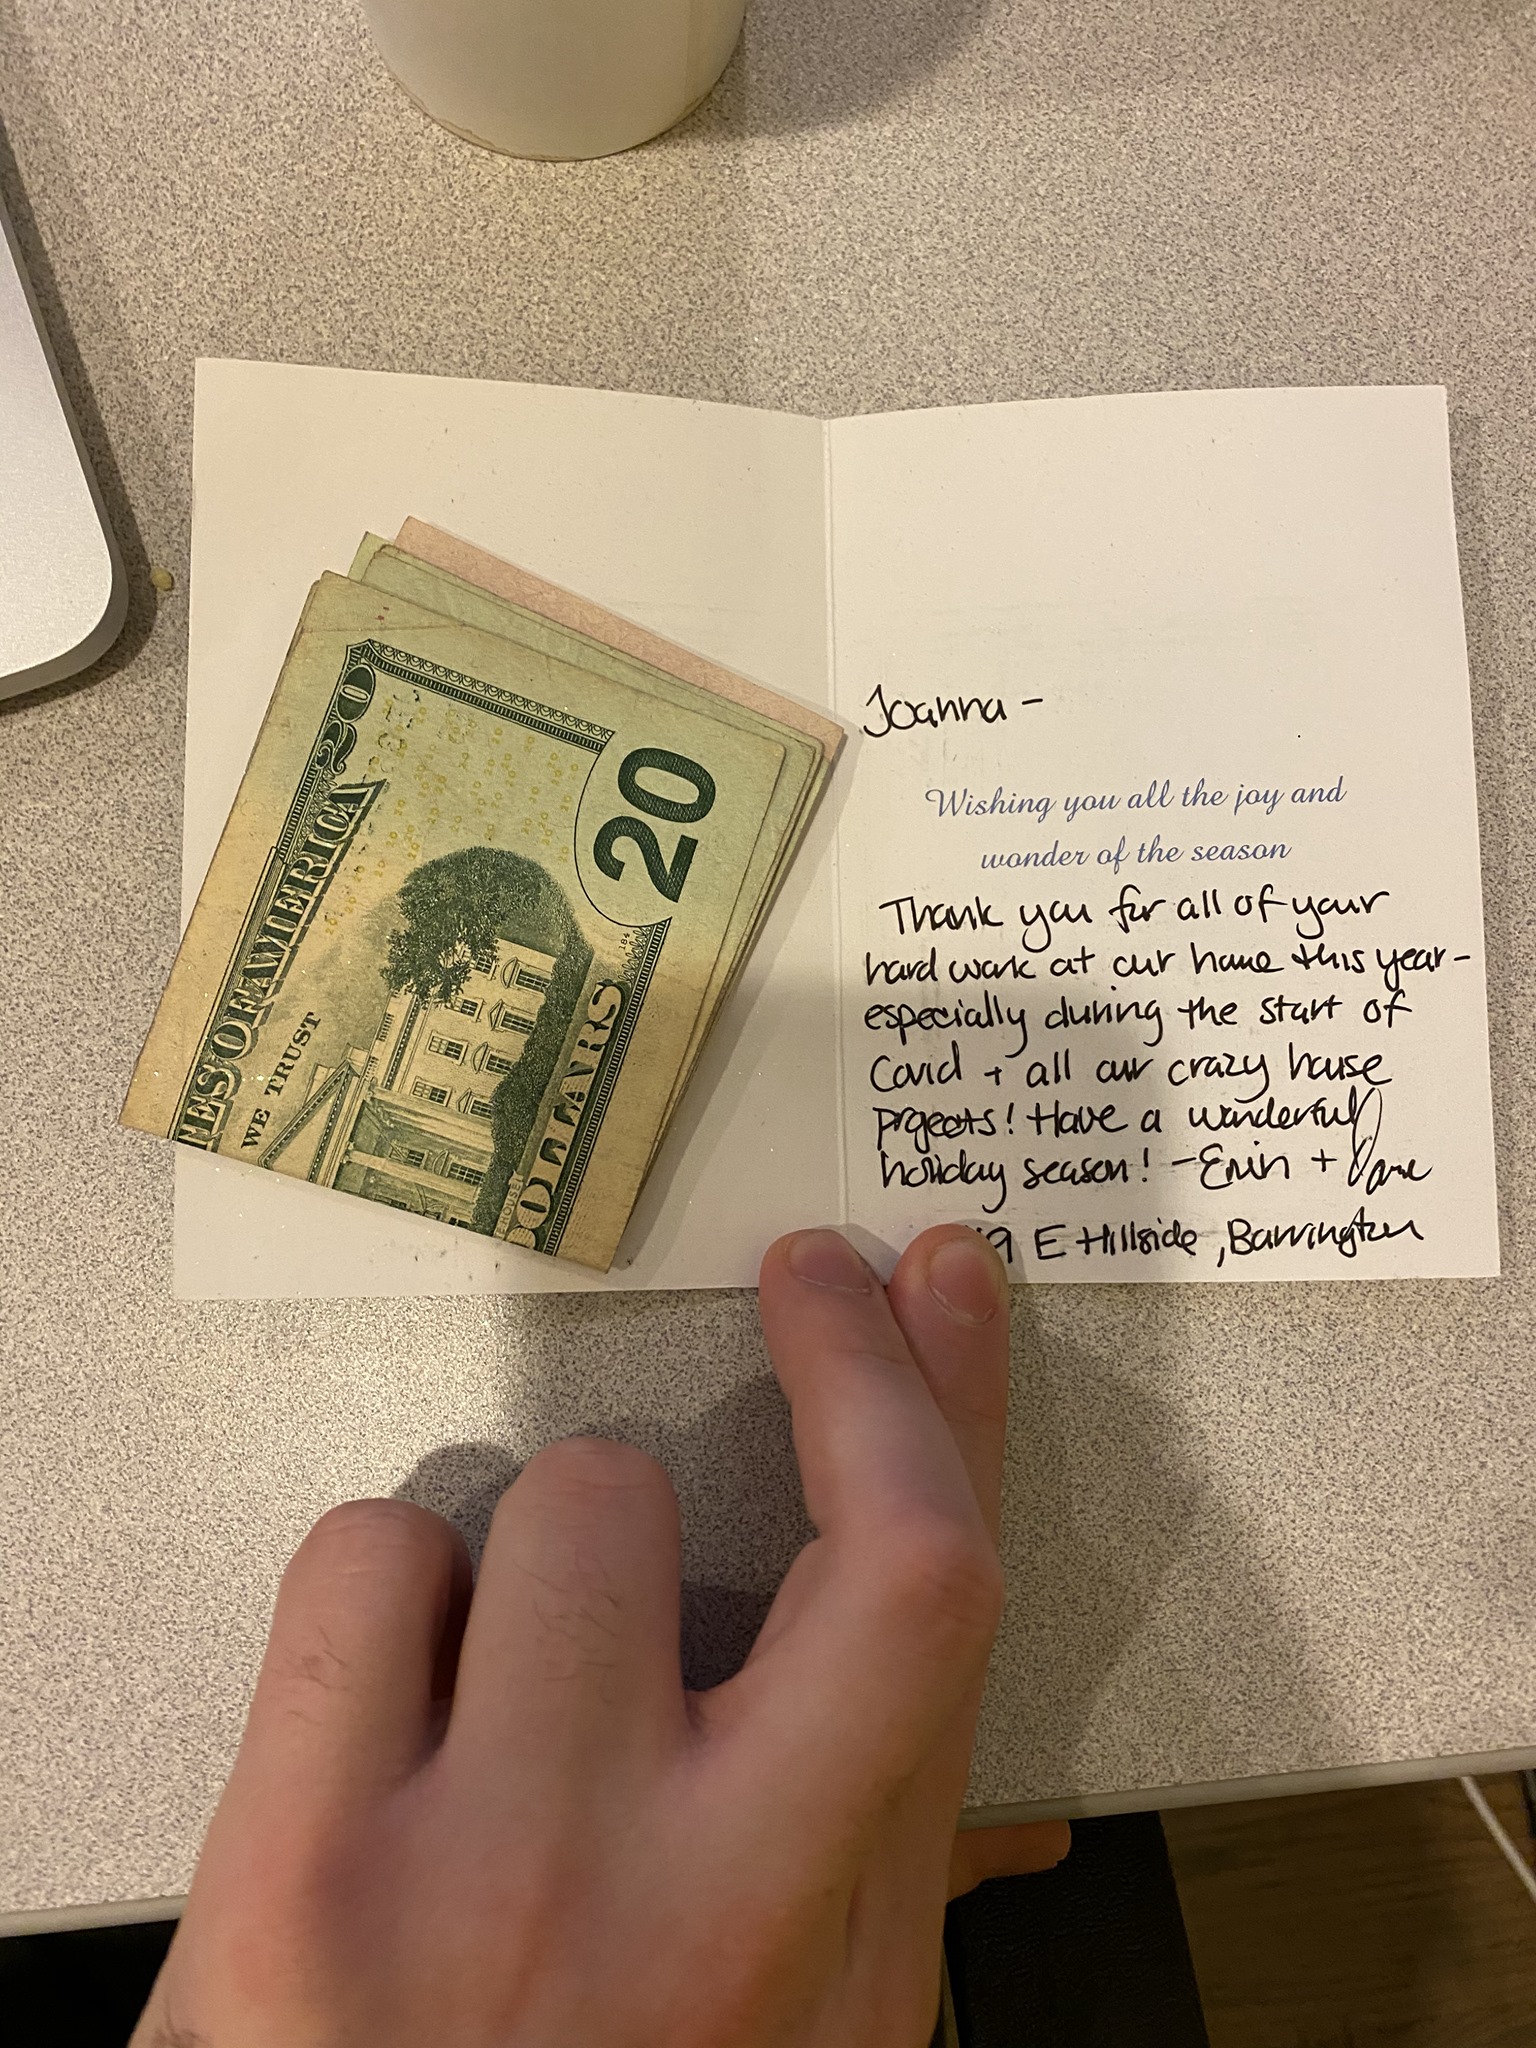 Joanna -
Wishing you all the joy and
wonder of the season
Thank you for all of your
hard work at our home this year-
especially during the start of
Covid + all our crazy house
projects! Have a wonderful
holiday season! -Erin +
9 E Hillside, Barrington
20
TES OF AMERICA
WE TRUST
20
DOLLARS